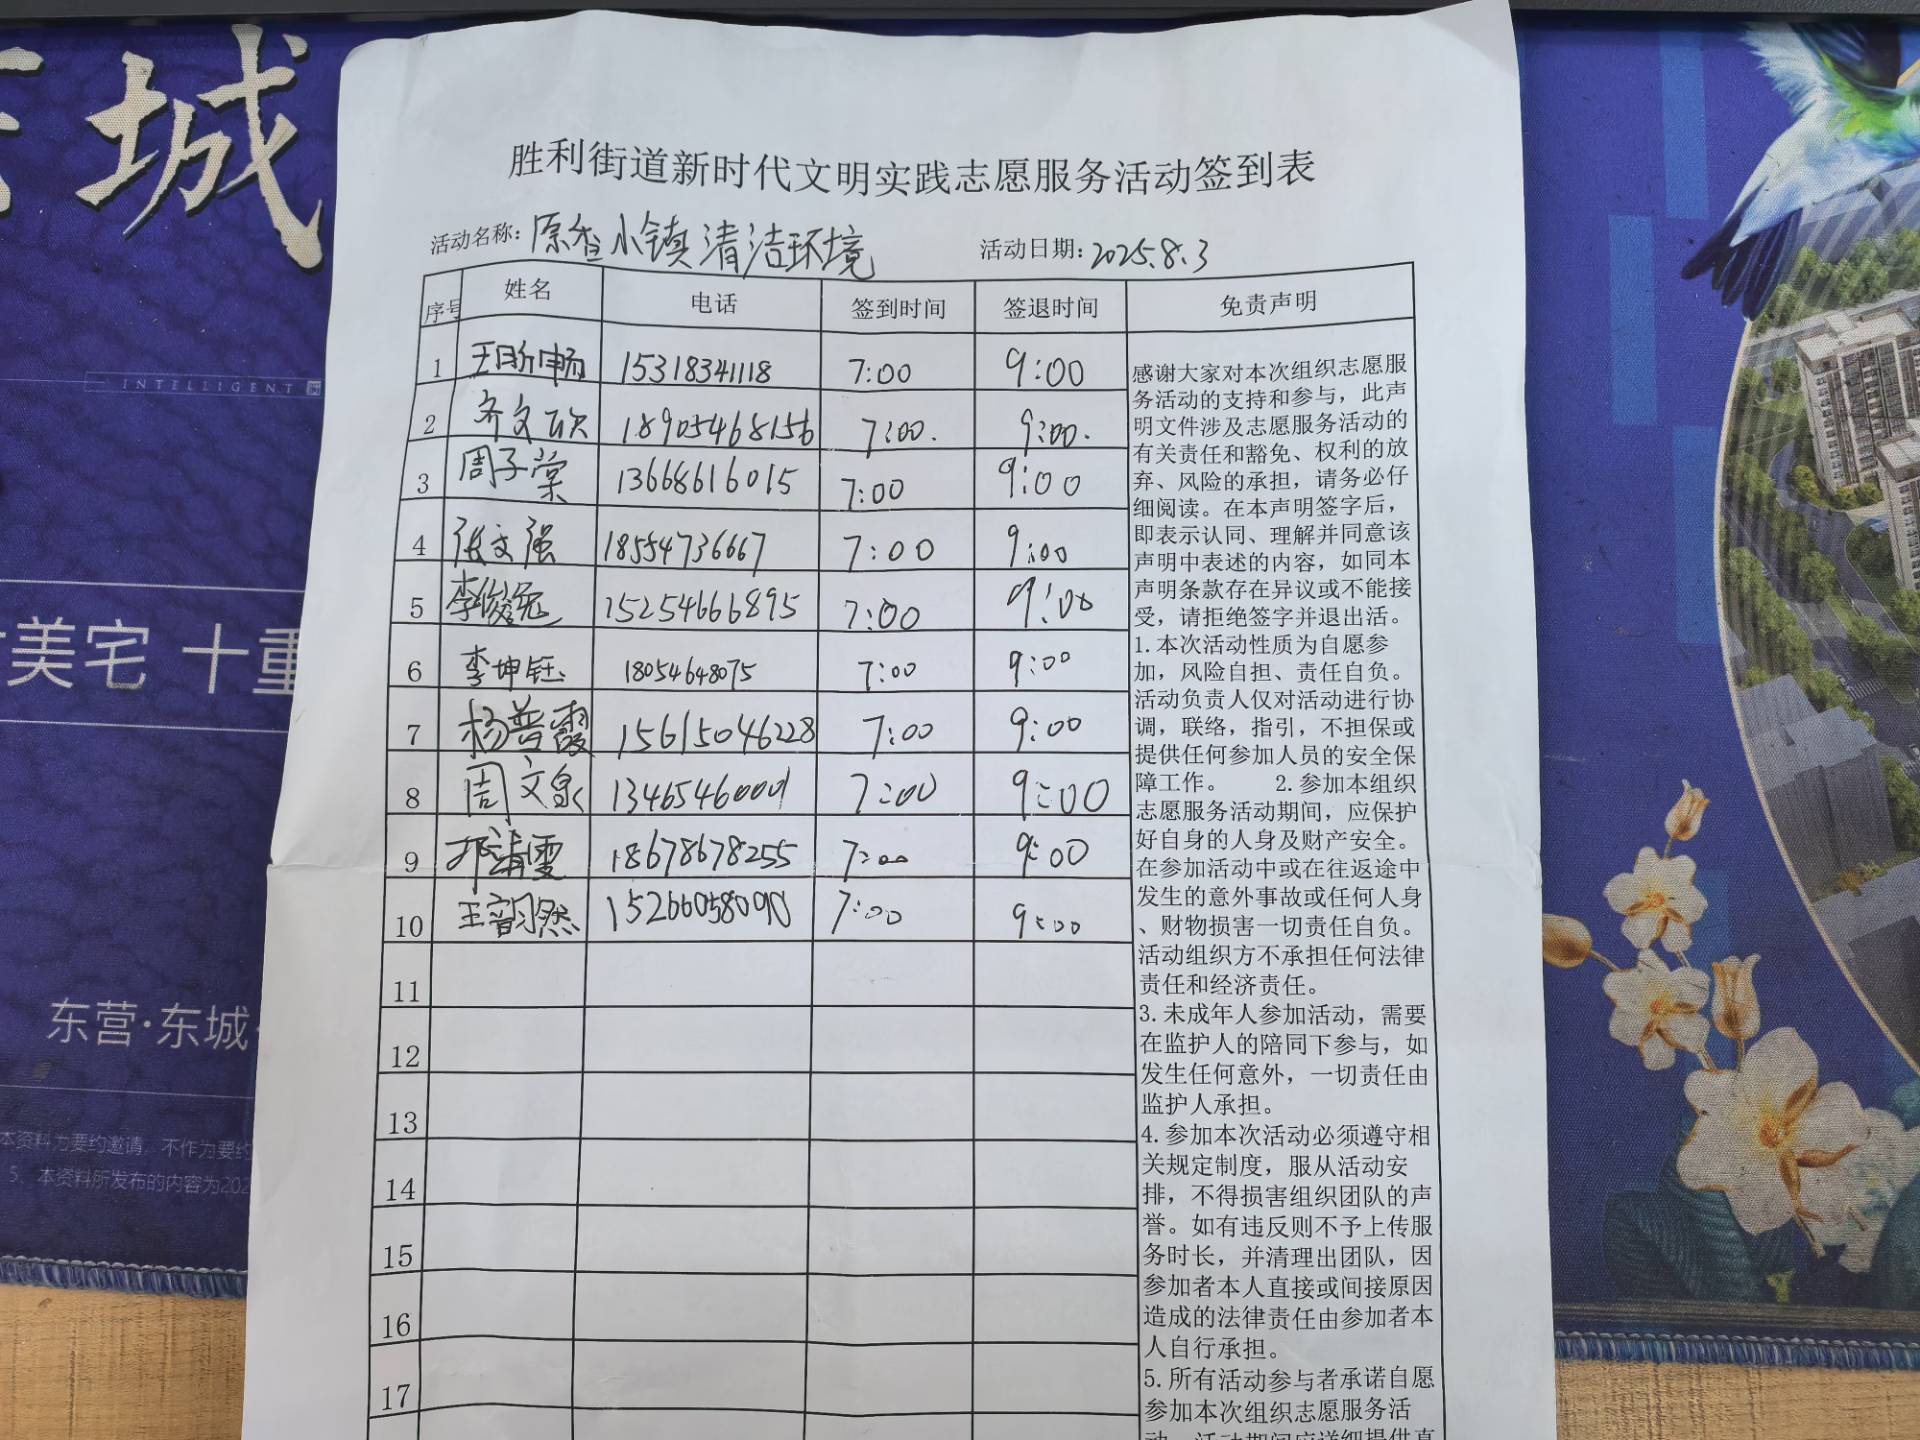 城
INTELLIGENT
美宅 十重
东营·东城
本资料为要约邀请，不作为要约
5、本资料所发布的内容为202
胜利街道新时代文明实践志愿服务活动签到表
活动名称：原香小镇清洁环境 活动日期：2025.8.3
序号 姓名 电话 签到时间 签退时间 免责声明
1 王昕畅 15318341118 7:00 9:00
2 齐文欣 18905468156 7:00. 9:00.
3 周子棠 13668616015 7:00 9:00
4 张文强 18554736667 7:00 9:00
5 李俊 15254666895 7:00 9:00
6 李坤钰 18054648075 7:00 9:00
7 杨普霞 15615046228 7:00 9:00
8 周文泉 13465460001 7:00 9:00
9 清雯 18678678255 7:00 9:00
10 王韵然 15266058090 7:00 9:00
11
12
13
14
15
16
17
感谢大家对本次组织志愿服
务活动的支持和参与，此声
明文件涉及志愿服务活动的
有关责任和豁免、权利的放
弃、风险的承担，请务必仔
细阅读。在本声明签字后，
即表示认同、理解并同意该
声明中表述的内容，如同本
声明条款存在异议或不能接
受，请拒绝签字并退出活。
1.本次活动性质为自愿参
加，风险自担、责任自负。
活动负责人仅对活动进行协
调，联络，指引，不担保或
提供任何参加人员的安全保
障工作。 2.参加本组织
志愿服务活动期间，应保护
好自身的人身及财产安全。
在参加活动中或在往返途中
发生的意外事故或任何人身
、财物损害一切责任自负。
活动组织方不承担任何法律
责任和经济责任。
3.未成年人参加活动，需要
在监护人的陪同下参与，如
发生任何意外，一切责任由
监护人承担。
4.参加本次活动必须遵守相
关规定制度，服从活动安
排，不得损害组织团队的声
誉。如有违反则不予上传服
务时长，并清理出团队，因
参加者本人直接或间接原因
造成的法律责任由参加者本
人自行承担。
5.所有活动参与者承诺自愿
参加本次组织志愿服务活
动，活动期间应详细提供真